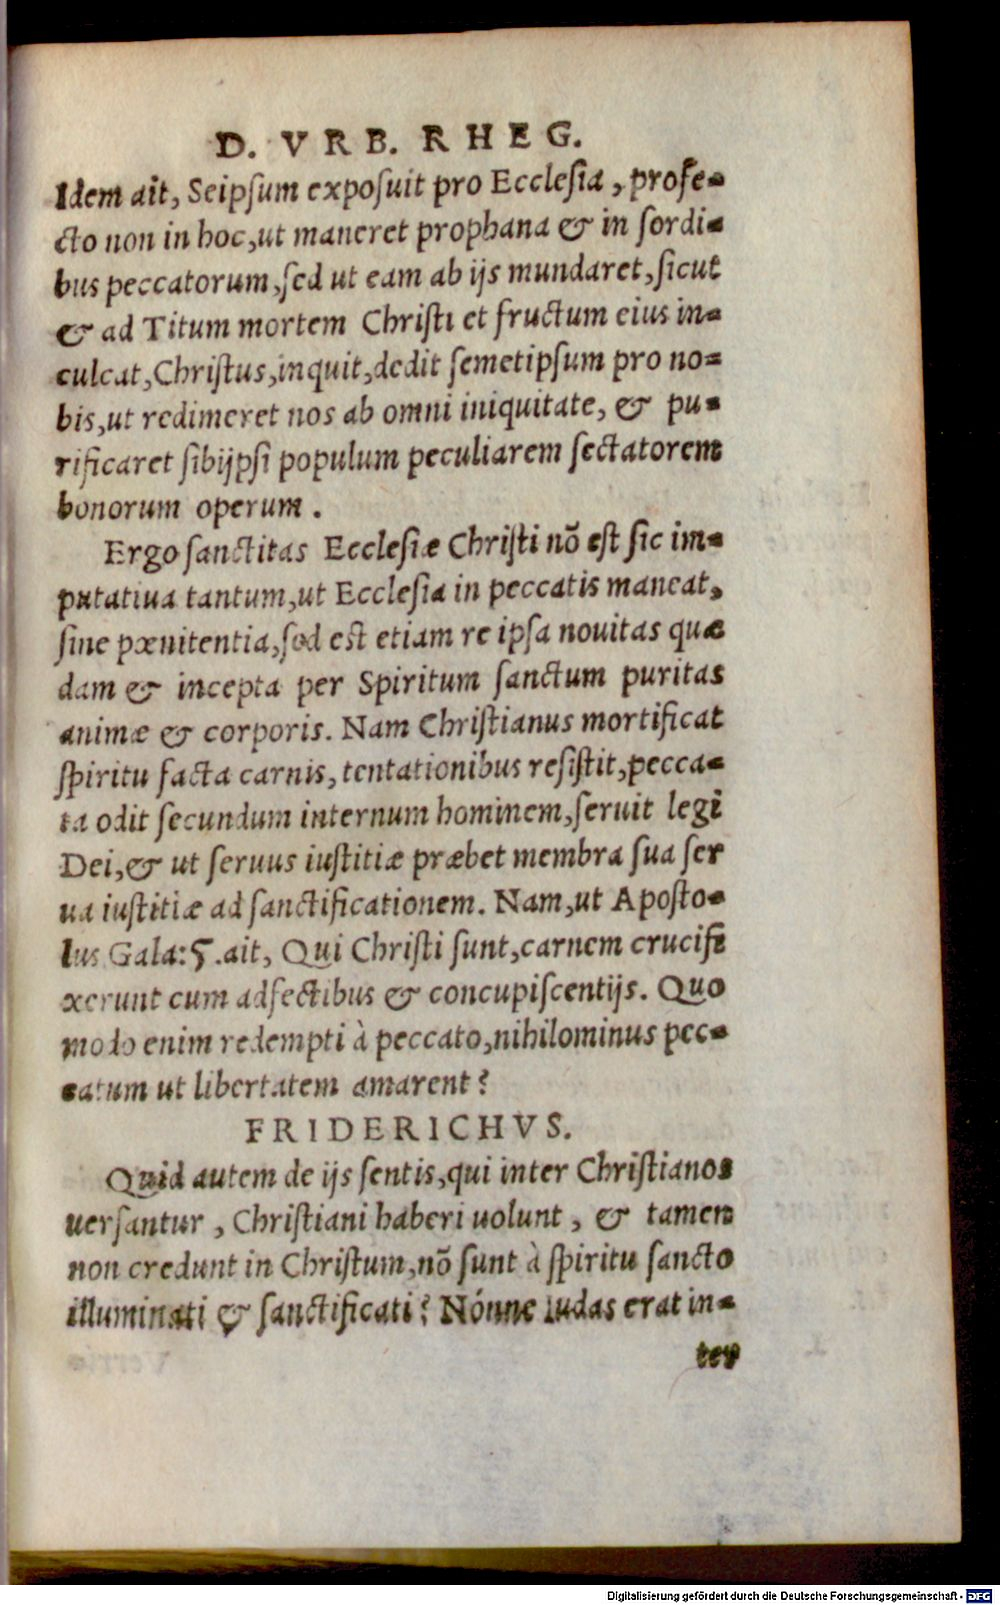 D. VRB. RHEG.
Idem ait, Seipsum exposuit pro Ecclesia, profe-
cto non in hoc, ut maneret prophana & in sordi-
bus peccatorum, sed ut eam ab ijs mundaret, sicut
& ad Titum mortem Christi et fructum eius in-
culcat, Christus, inquit, dedit semetipsum pro no-
bis, ut redimeret nos ab omni iniquitate, & pu-
rificaret sibijpsi populum peculiarem sectatorem
bonorum operum.
Ergo sanctitas Ecclesiæ Christi nõ est sic im-
putatiua tantum, ut Ecclesia in peccatis maneat,
sine pœnitentia, sed est etiam re ipsa nouitas quæ
dam & incepta per Spiritum sanctum puritas
animæ & corporis. Nam Christianus mortificat
spiritu facta carnis, tentationibus resistit, pecca-
ta odit secundum internum hominem, seruit legi
Dei, & ut seruus iustitiæ præbet membra sua ser
ua iustitiæ ad sanctificationem. Nam, ut Aposto-
lus Gala: 5. ait, Qui Christi sunt, carnem crucifi
xerunt cum adfectibus & concupiscentijs. Quo
modo enim redempti à peccato, nihilominus pec-
catum ut libertatem amarent?
FRIDERICHVS.
Quid autem de ijs sentis, qui inter Christianos
uersantur, Christiani haberi uolunt, & tamen
non credunt in Christum, nõ sunt à spiritu sancto
illuminati & sanctificati? Nónne Iudas erat in-
ter
Digitalisierung gefördert durch die Deutsche Forschungsgemeinschaft - DFG